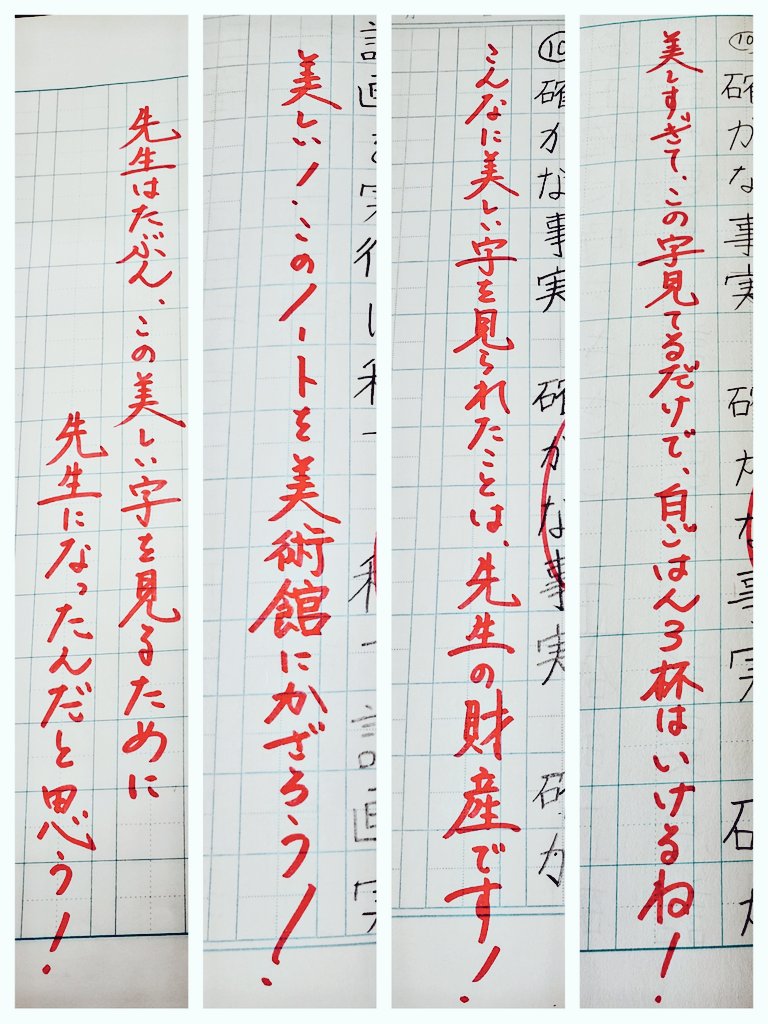 先生はたぶん、この美しい字を見るために
先生になったんだと思う!
美しい!このノートを美術館にかざろう!
⑩確かな事実 確かな事実 確か
こんなに美しい字を見られたことは、先生の財産です!
⑩確かな事実 確かな事実
美しすぎて、この字見てるだけで、白ごはん3杯はいけるね!